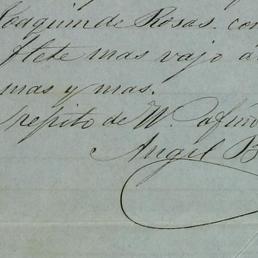 Joaquin de Rosas. con
flete mas vajo d
mas y mas.
repito de W. afmo
Angel B